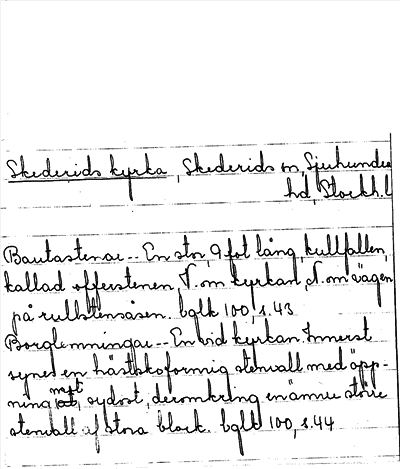 Skederids kyrka, Skederids sn, Sjuhundra
hd, Stockh.l
Bautastenar.-- En stor, 9 fot lång, kullfallen,
kallad offerstenen, V. om kyrkan, N. om vägen
på rullstensåsen. bglk 100, s. 43
Borglemningar.-- En vid kyrkan. Innerst
synes en hästskoformig stenvall med öpp-
ning mot sydost, deromkring en ännu större
stenvall af stora block. bglk 100, s. 44